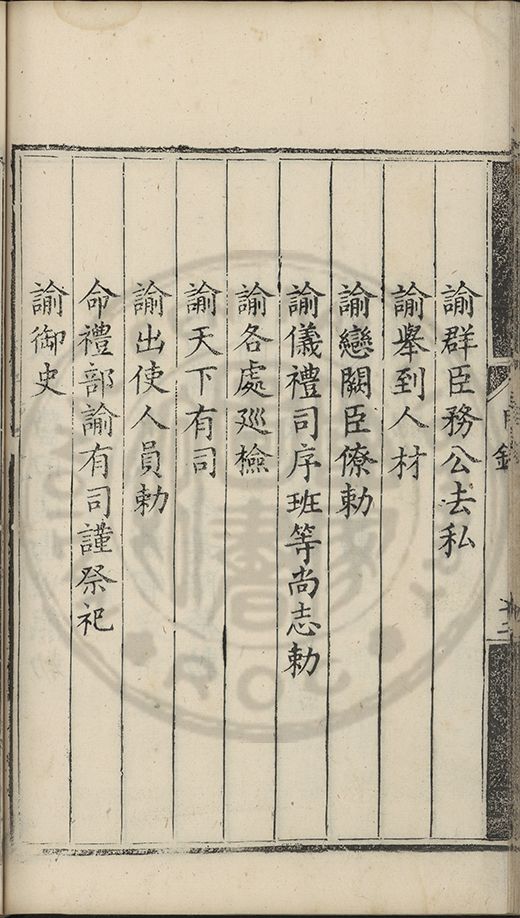 諭群臣務公去私
諭舉到人材
諭戀闕臣僚勅
諭儀禮司序班等尚志勅
諭各處廵檢
諭天下有司
諭出使人員勅
命禮部諭有司謹祭祀
諭御史